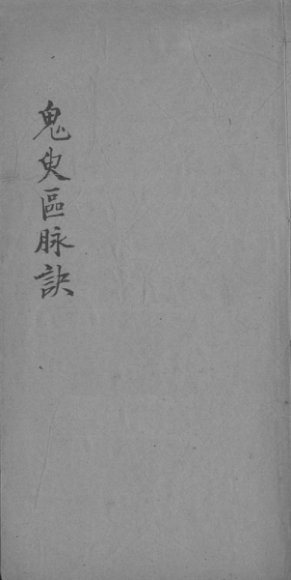 鬼臾區脉訣